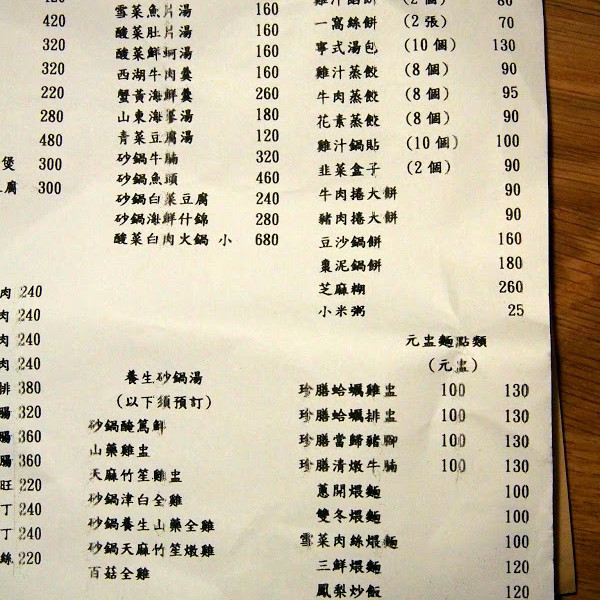 420
320
320
220
280
480
煲 300
腐 300
肉 240
肉 240
肉 240
肉 240
排 380
腸 320
腸 360
腸 360
旺 220
丁 240
丁 240
絲 220
雪菜魚片湯 160
酸菜肚片湯 160
酸菜鮮蚵湯 160
西湖牛肉羹 160
蟹黃海鮮羹 260
山東海蔘湯 180
青菜豆腐湯 120
砂鍋牛腩 320
砂鍋魚頭 460
砂鍋白菜豆腐 240
砂鍋海鮮什錦 280
酸菜白肉火鍋 小 680
養生砂鍋湯
(以下須預訂)
砂鍋醃篤鮮
山藥雞盅
天麻竹笙雞盅
砂鍋津白全雞
砂鍋養生山藥全雞
砂鍋天麻竹笙燉雞
百菇全雞
雞汁餡餅 (2 個) 80
一窩絲餅 (2 張) 70
寧式湯包 (10 個) 130
雞汁蒸餃 (8 個) 90
牛肉蒸餃 (8 個) 95
花素蒸餃 (8 個) 90
雞汁鍋貼 (10 個) 100
韭菜盒子 (2 個) 90
牛肉捲大餅 90
豬肉捲大餅 90
豆沙鍋餅 160
棗泥鍋餅 180
芝麻糊 260
小米粥 25
元盅麵點類
(元盅)
珍膳蛤蠣雞盅 100 130
珍膳蛤蠣排盅 100 130
珍膳當歸豬腳 100 130
珍膳清燉牛腩 100 130
蔥開煨麵 100
雙冬煨麵 100
雪菜肉絲煨麵 100
三鮮煨麵 120
鳳梨炒飯 120